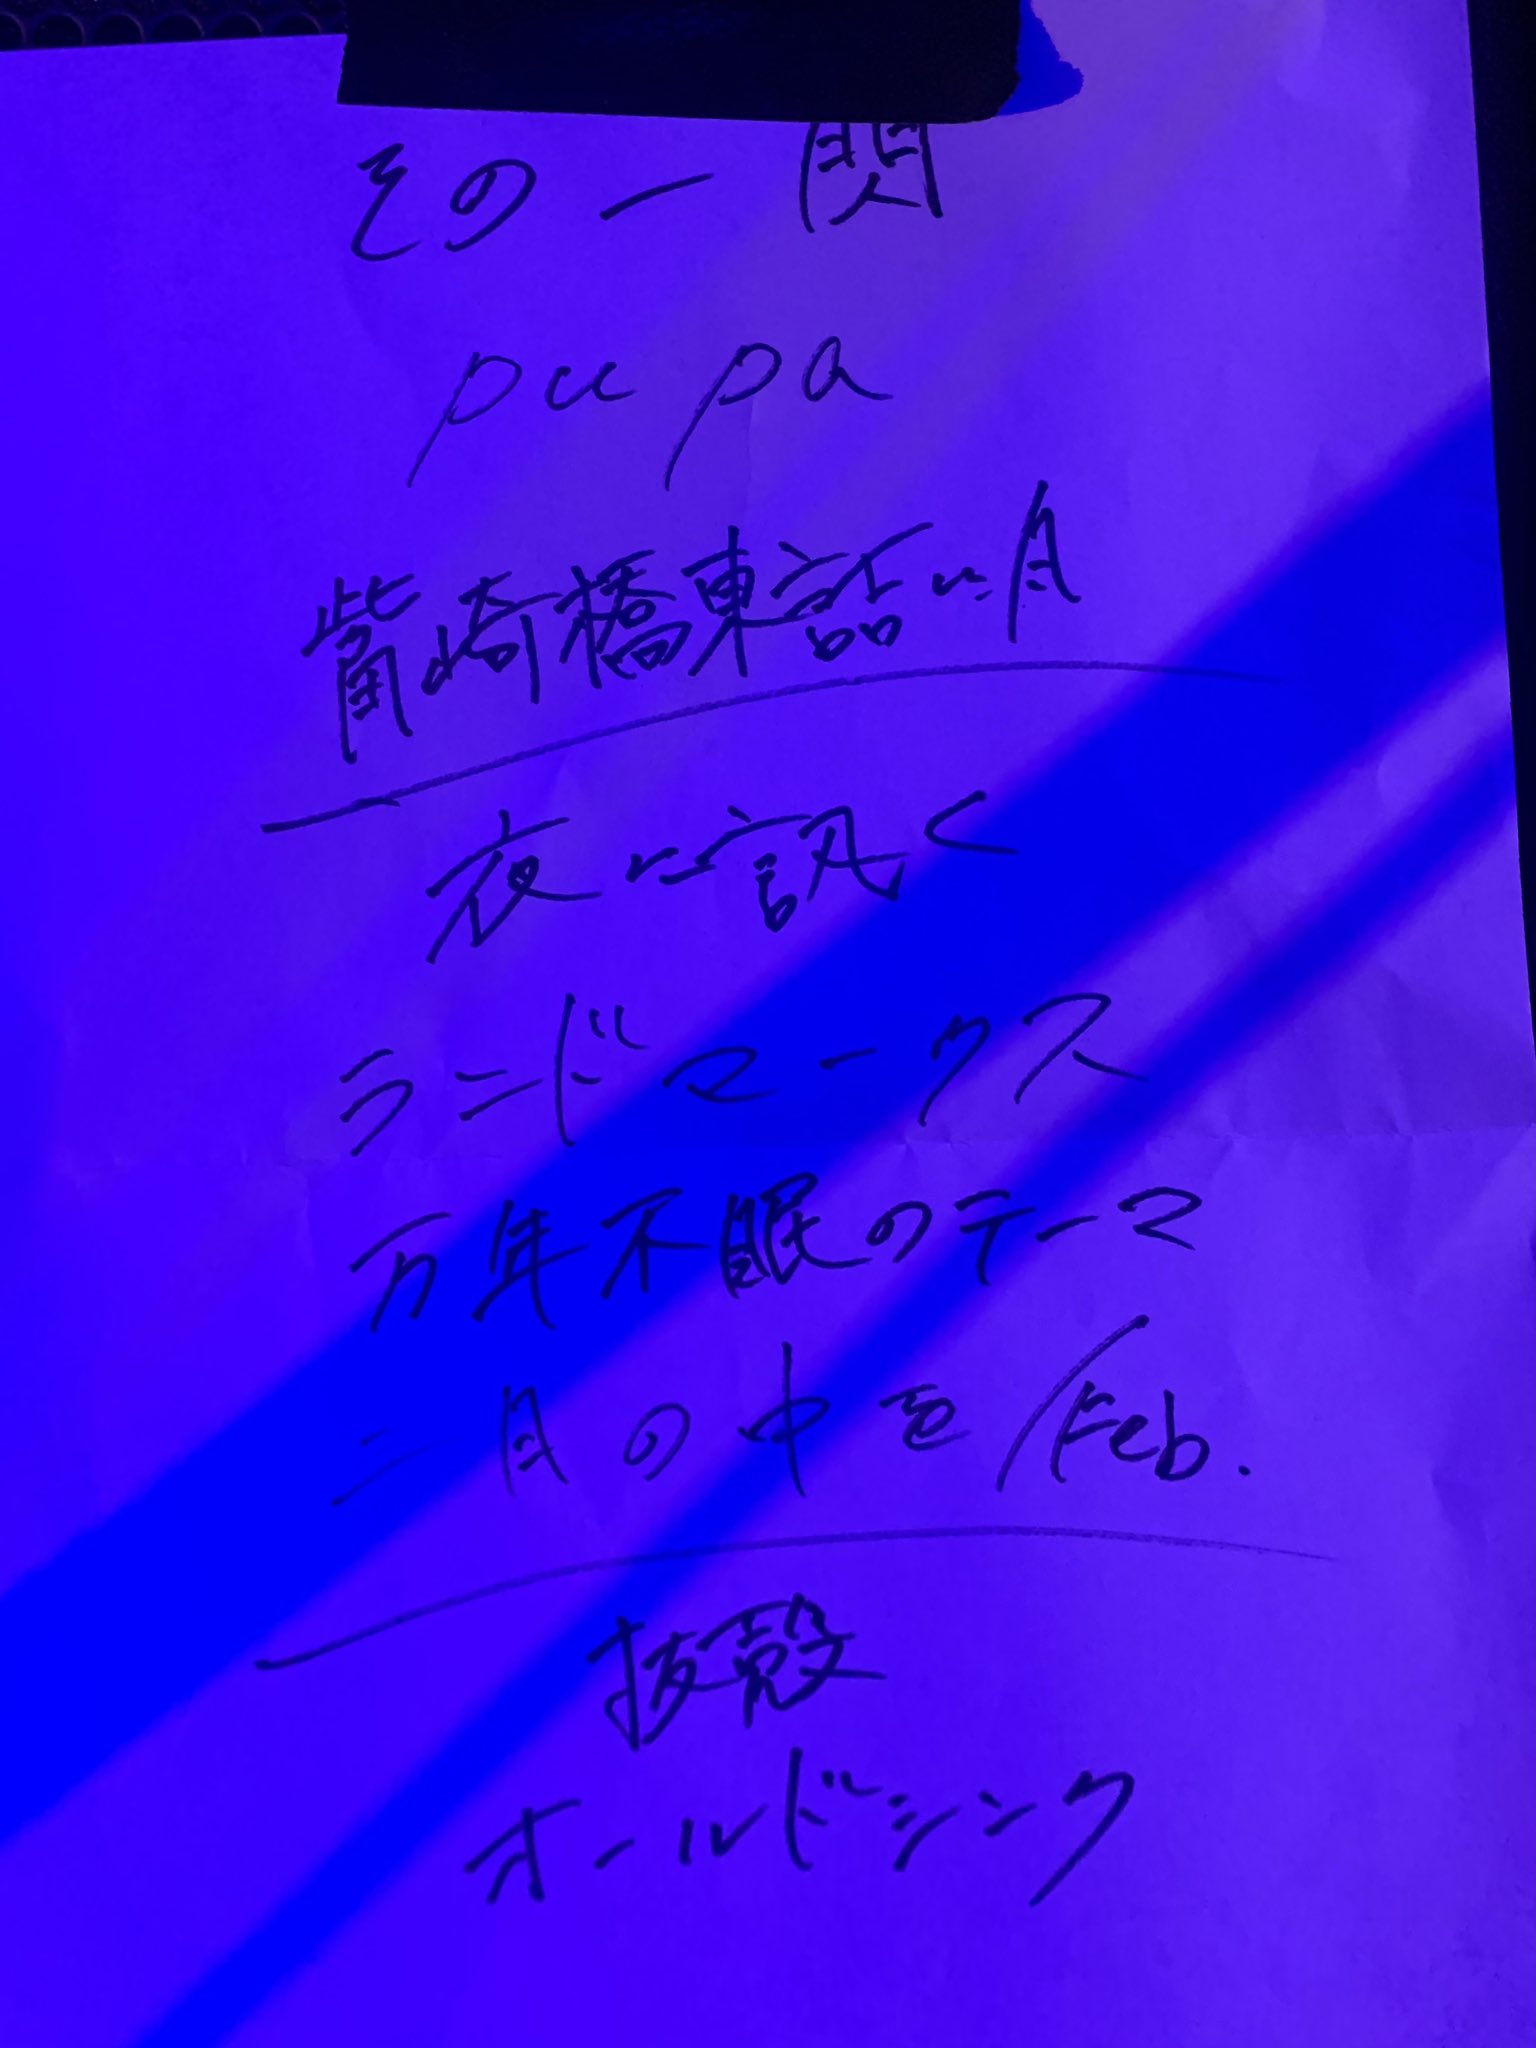 その一閃
pupa
觜崎橋東詰に月
夜に訊く
ランドマークス
万年不眠のテーマ
二月の中を/Feb.
抜殻
オールドシンク